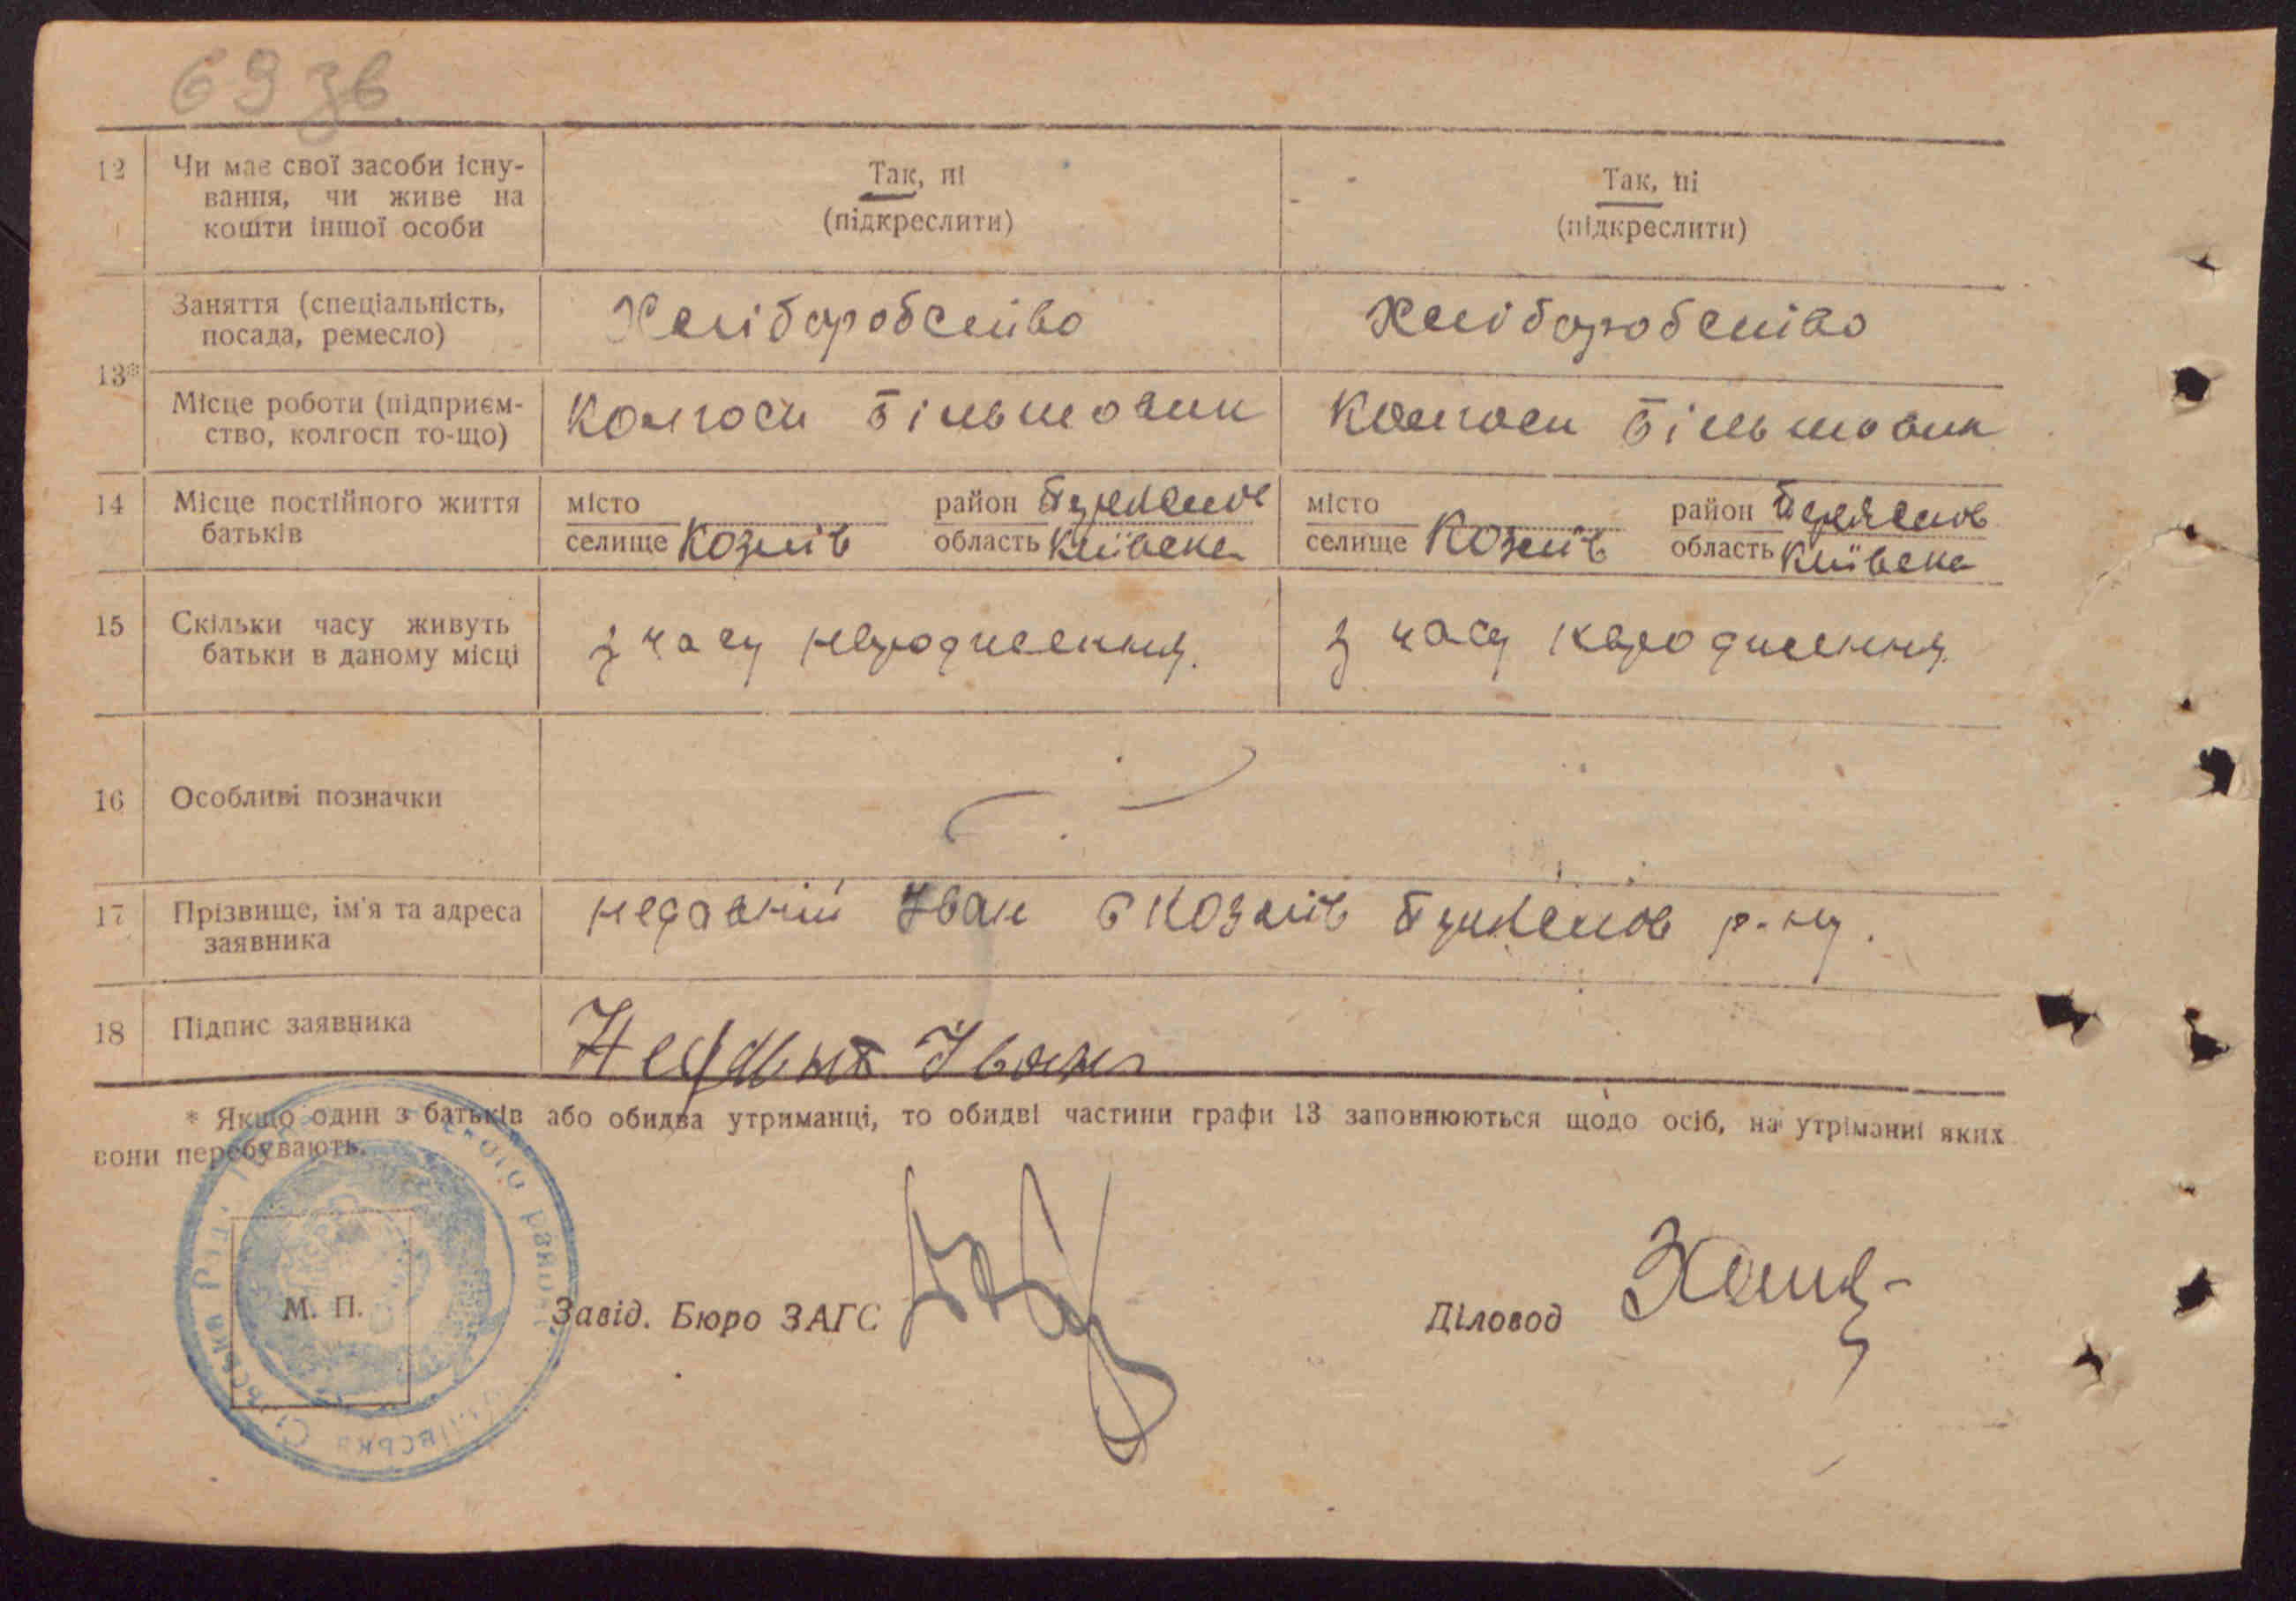 69 зв
12 Чи має свої засоби існу- Так, ні Так, ні
вання, чи живе на
кошти іншої особи (підкреслити) (підкреслити)
Заняття (спеціальність, Хліборобство Хліборобство
посада, ремесло)
13*
Місце роботи (підприєм- Колгосп Більшовик Колгосп Більшовик
ство, колгосп то-що)
14 Місце постійного життя місто район місто район
батьків селище Козлів область Київська селище Козлів область Київська
15 Скільки часу живуть з часу народження. з часу народження.
батьки в даному місці
16 Особливі позначки
17 Прізвище, ім'я та адреса Недавній Іван с Козлів р-ну.
заявника
18 Підпис заявника Іван
* Якщо один з батьків або обидва утриманці, то обидві частини графи 13 заповнюються щодо осіб, на утріманні яких
вони перебувають.
М. П. Завід. Бюро ЗАГС Діловод